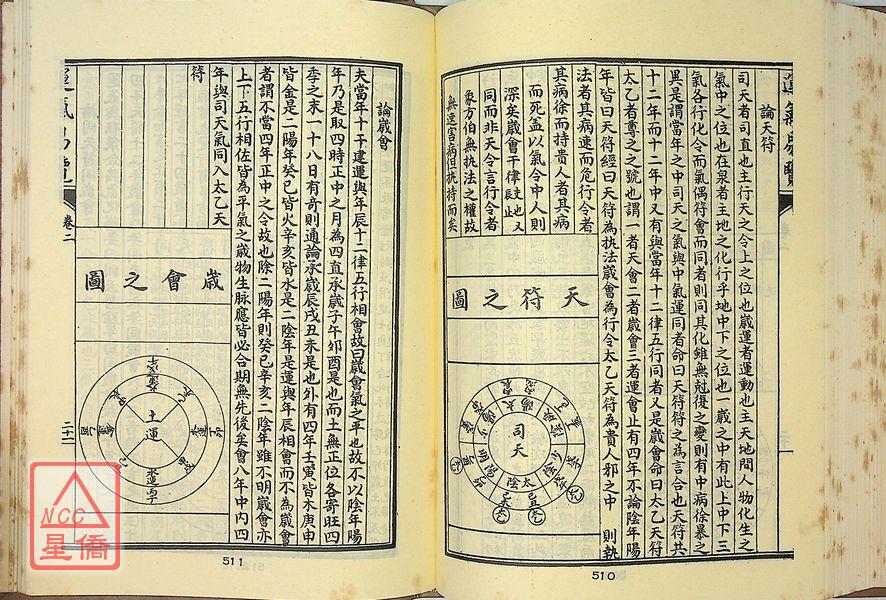 論天符
司天者司直也主行天之令上之位也歲運者運動也主天地間人物化生之
氣中之位也在泉者主地之化行乎地中下之位也一歲之中有此上中下三
氣各行化令而氣偶符會而同者則同其化雖無尅復之變則有中病徐暴之
異是謂當年之中司天之氣與中氣運同者命曰天符符之為言合也天符共
十二年而十二年中又有與當年十二律五行同者又是歲會命曰太乙天符
太乙者尊之之號也謂一者天會二者歲會三者運會止有四年不論陰年陽
年皆曰天符經曰天符為執法歲會為行令太乙天符為貴人邪之中
則執
法者其病速而危行令者
其病徐而持貴人者其病
而死盖以氣令中人則
深矣歲會干律
而止又
同而非天令言行令者
象方伯無執法之權故
無速害病但執持而矣
天符之圖
司天
太陰
少陰
陽明
太陽
510
論歲會
夫當年十干建運與年辰十二律五行相會故曰歲會氣之平也故不以陰年陽
年乃是取四時正中之月為四直承歲子午卯酉是也而土無正位各寄旺四
季之末一十八日有奇則通論承歲辰戌丑未是也外有四年壬寅皆木庚申
皆金是二陽年癸巳皆火辛亥皆水是二陰年是運與年辰相會而不為歲會
者謂不當四年正中之令故也除二陽年則癸巳辛亥二陰年雖不明歲會亦
上下五行相佐皆為平氣之歲物生脉應皆必合期無先後矣會八年中內四
年與司天氣同入太乙天
符
歲會之圖
土運
水運
丙子
卷二
二十一
511
NCC
星僑